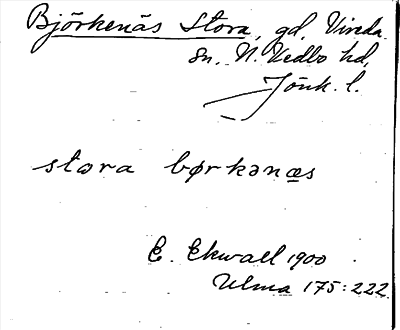 Björkenäs Stora, gd, Vireda
sn, N. Vedbo hd,
Jönk. l.
stora børkənæs
E. Ekwall 1900
Ulma 175:222.